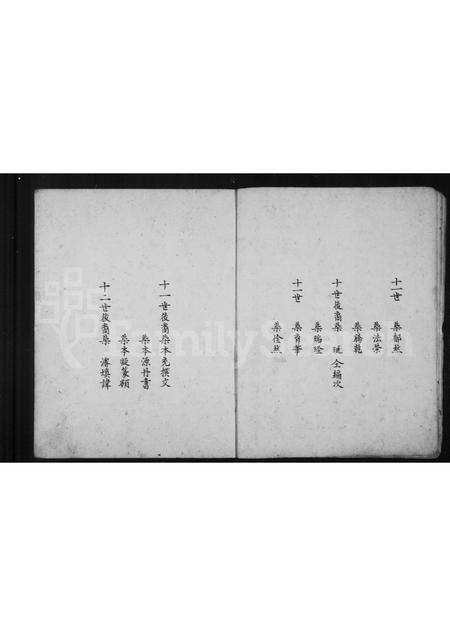 十一世 桑郁然
桑法榮
桑勝乾
十世後裔桑 琥 仝編次
桑瑞瑩
十一世 桑貞華
桑佺然
十一世後裔桑本堯撰文
桑本源丹書
桑本凝篆額
十二世後裔桑 濬填諱
FamilySearch